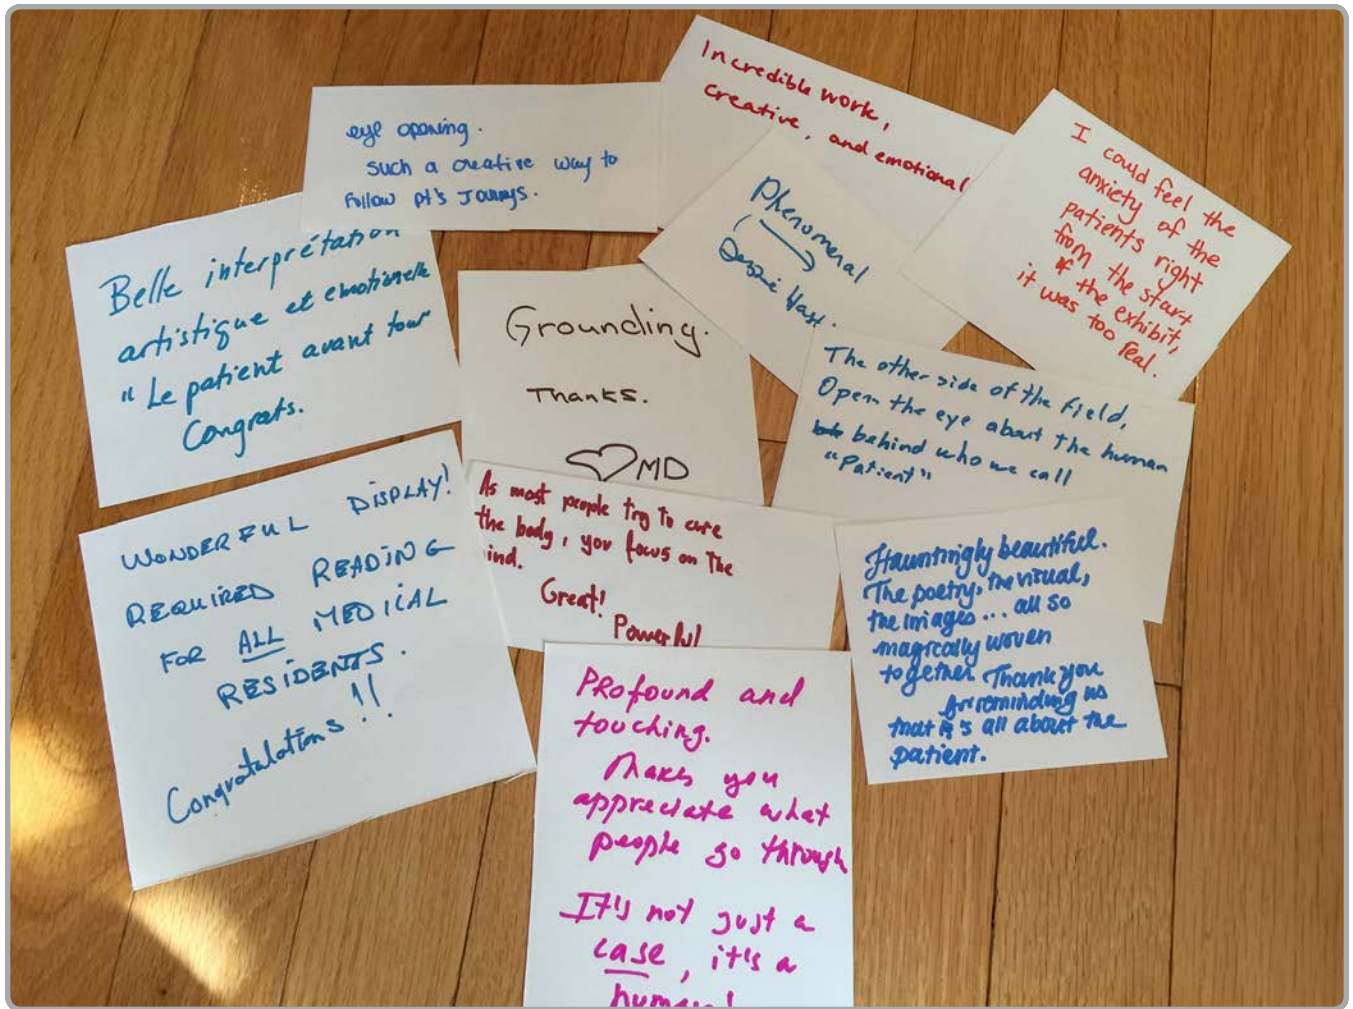 Incredible work,
creative, and emotional
eye opening.
such a creative way to
Follow pt's
I could feel the
anxiety of the
patients right
from the start
of the exhibit,
it was too real.
Phenomenal
Belle interprétation
artistique et emotionelle
"Le patient avant tout"
Congrats.
Grounding.
Thanks.
MD
The other side of the field,
Open the eye about the human
behind who we call
"Patient"
WONDERFUL DISPLAY!
REQUIRED READING
FOR ALL MEDICAL
RESIDENTS.
Congratulations!!
As most people try to cure
the body, you focus on the
ind.
Great!
Powerful
Hauntingly beautiful.
The poetry, the visual,
the images... all so
magically woven
together. Thank you
for reminding us
that it's all about the
patient.
Profound and
touching.
Makes you
appreciate what
people go through
It's not just a
case, it's a
human!